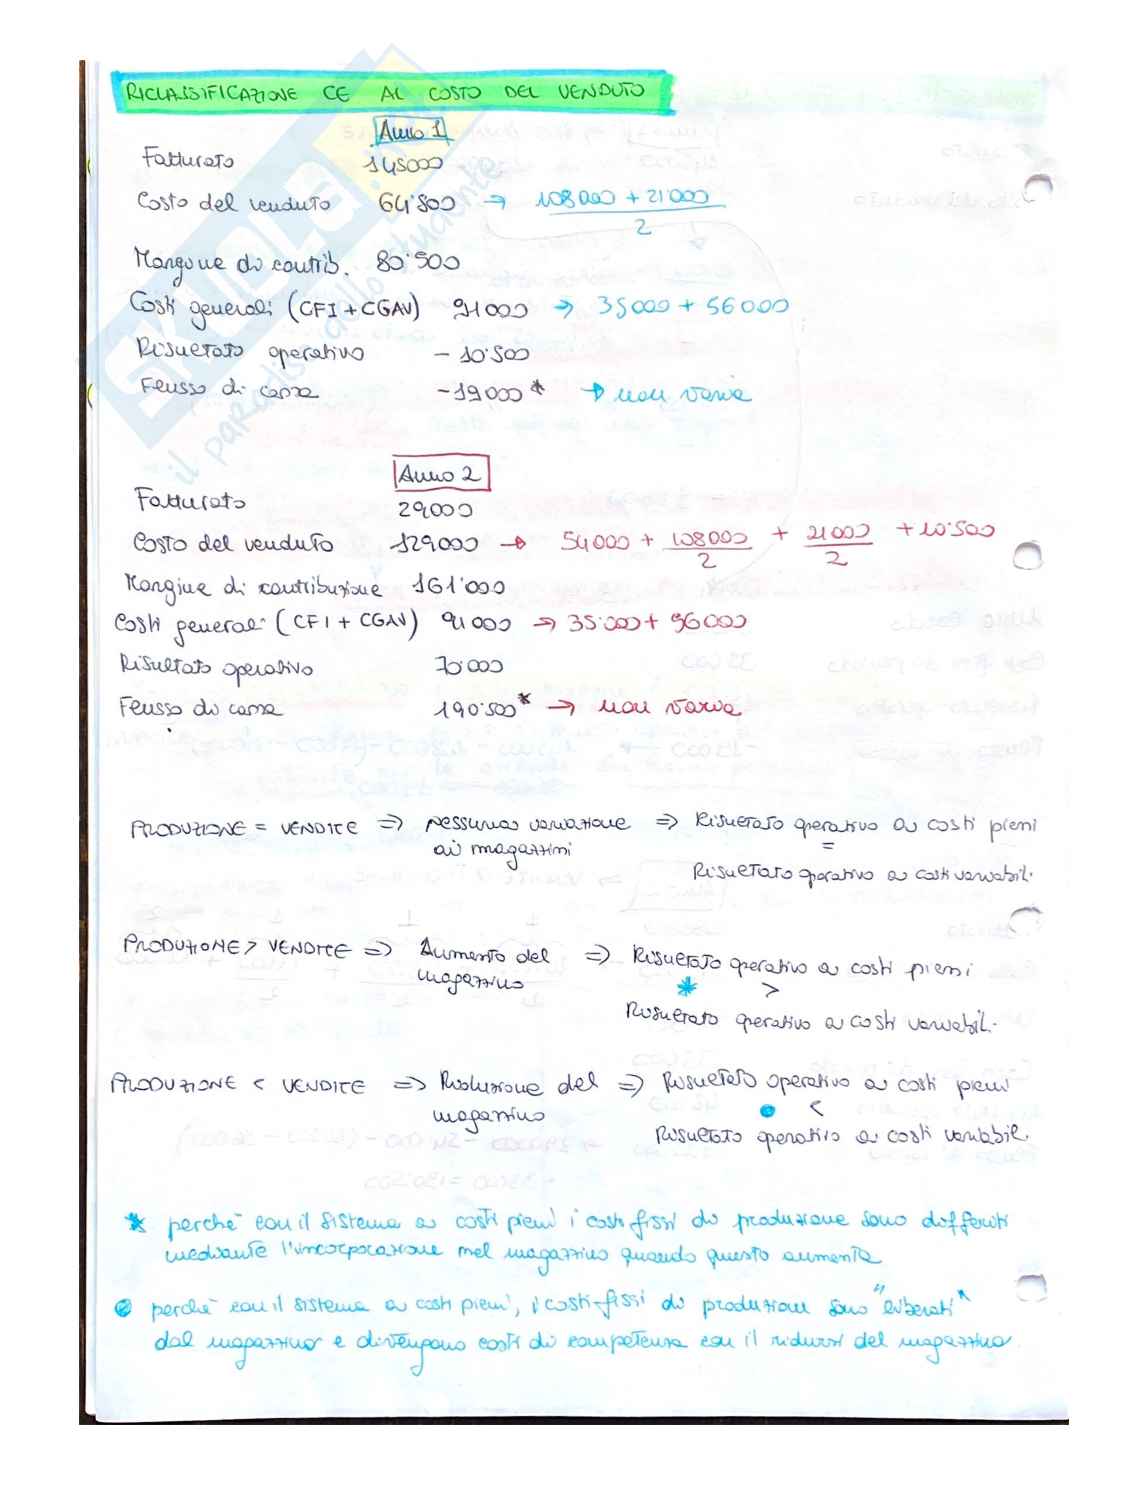 RICLASSIFICAZIONE CE AL COSTO DEL VENDUTO
Anno 1
Fatturato 145000
Costo del venduto 64'800 → 108000 + 21'000
2
Margine di contrib. 80'500
Costi generali (CFI + CGAV) 91000 → 35000 + 56000
Risultato operativo - 10'500
Flusso di cassa - 19000 * → non varia
Anno 2
Fatturato 29000
Costo del venduto 129000 → 54000 + 108000 + 21000 + 10'500
2 2
Margine di contribuzione 161'000
Costi generali (CFI + CGAV) 91000 → 35'000 + 56000
Risultato operativo 70'000
Flusso di cassa 190'500* → non varia
PRODUZIONE = VENDITE ⇒ nessuna variazione ⇒ Risultato operativo a costi pieni
ai magazzini =
Risultato operativo a costi variabili.
PRODUZIONE > VENDITE ⇒ Aumento del ⇒ Risultato operativo a costi pieni
magazzino * >
Risultato operativo a costi variabil.
PRODUZIONE < VENDITE ⇒ Riduzione del ⇒ Risultato operativo a costi pieni
magazzino ● <
Risultato operativo a costi variabil.
* perchè con il sistema a costi pieni i costi fissi di produzione sono differiti
mediante l'incorporazione nel magazzino quando questo aumenta
● perchè con il sistema a costi pieni, i costi fissi di produzione sono "liberati"
dal magazzino e divengono costi di competenza con il ridursi del magazzino.
SKUOLA.net
il paradiso dello studente